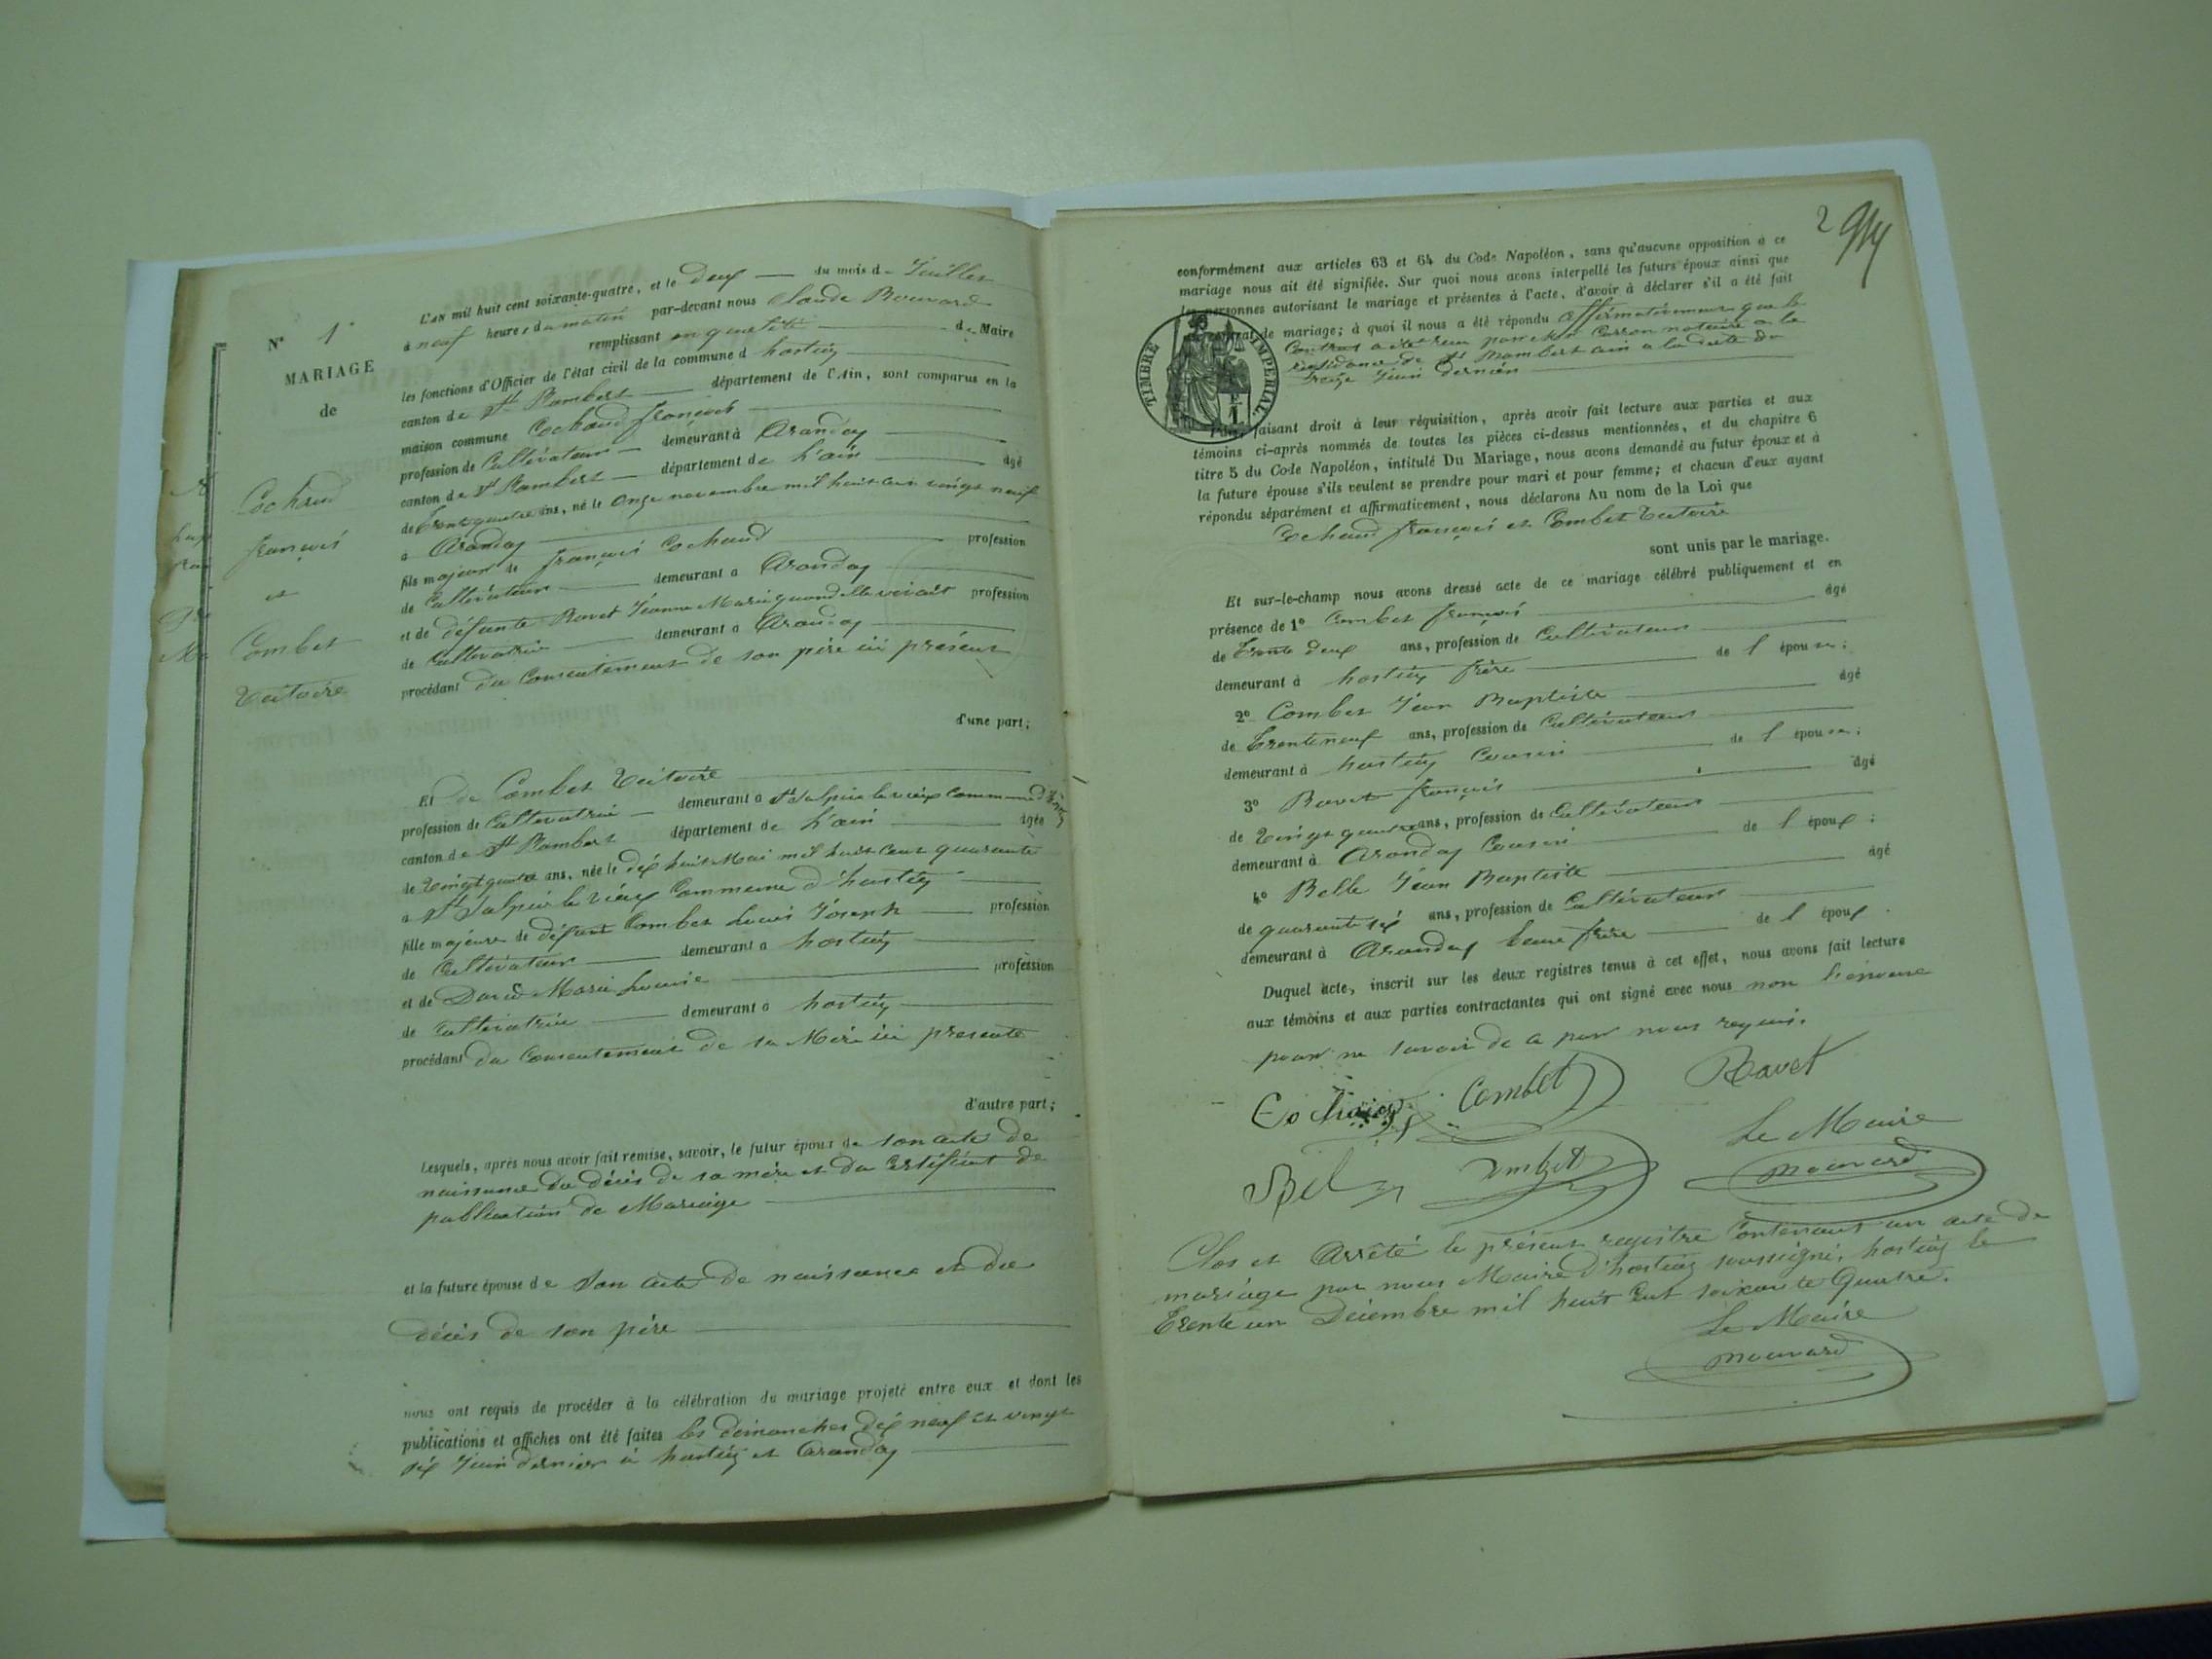 N° 1
MARIAGE
de
Cochaud
françois
et
Combet
Victoire
L'an mil huit cent soixante-quatre, et le deux du mois de Juillet
à neuf heures du matin par-devant nous Claude
remplissant en qualité de Maire
les fonctions d'Officier de l'état civil de la commune d hostiaz
canton de St Rambert département de l'Ain, sont comparus en la
maison commune Cochaud françois
profession de Cultivateur demeurant à Arandas
canton de St Rambert département de L'ain âgé
de trente quatre ans, né le onze novembre mil huit cent vingt neuf
à Arandas
fils majeur de françois Cochaud profession
de Cultivateur demeurant à Arandas
et de défunte Ravet Jeanne Marie quand elle vivait profession
de Cultivatrice demeurant à Arandas
procédant du Consentement de son père ici présent
d'une part;
Et de Combet Victoire
profession de Cultivatrice demeurant à St Sulpice le vieux Commune d'hostiaz
canton de St Rambert département de L'ain âgée
de vingt quatre ans, née le dix huit Mai mil huit cent quarante
à St Sulpice le vieux Commune d'hostiaz
fille majeure de défunt Combet Louis Joseph profession
de Cultivateur demeurant à hostiaz
et de David Marie Louise profession
de Cultivatrice demeurant à hostiaz
procédant du Consentement de sa Mère ici presente
d'autre part;
Lesquels, après nous avoir fait remise, savoir, le futur époux de son acte de
naissance du décès de sa mère et du Certificat de
publication de Mariage
et la future épouse de son acte de naissance et du
décès de son père
nous ont requis de procéder à la célébration du mariage projeté entre eux et dont les
publications et affiches ont été faites les dimanches dix neuf et vingt
six Juin dernier à hostiaz et Arandas
2
conformément aux articles 63 et 64 du Code Napoléon, sans qu'aucune opposition à ce
mariage nous ait été signifiée. Sur quoi nous avons interpellé les futurs époux ainsi que
les personnes autorisant le mariage et présentes à l'acte, d'avoir à déclarer s'il a été fait
contrat de mariage; à quoi il nous a été répondu affirmativement que le
Contrat a été reçu par Mtre notaire a la
residence de St Rambert ain a la date du
treize Juin dernier
TIMBRE IMPERIAL
F
1
Puis, faisant droit à leur réquisition, après avoir fait lecture aux parties et aux
témoins ci-après nommés de toutes les pièces ci-dessus mentionnées, et du chapitre 6
titre 5 du Code Napoléon, intitulé Du Mariage, nous avons demandé au futur époux et à
la future épouse s'ils veulent se prendre pour mari et pour femme; et chacun d'eux ayant
répondu séparément et affirmativement, nous déclarons Au nom de la Loi que
Cochaud françois et Combet Victoire
sont unis par le mariage.
Et sur-le-champ nous avons dressé acte de ce mariage célébré publiquement et en
présence de 1° Combet françois âgé
de trente deux ans, profession de Cultivateur
demeurant à hostiaz frère de l épouse;
2° Combet Jean Baptiste âgé
de trente neuf ans, profession de Cultivateur
demeurant à hostiaz Cousin de l épouse;
3° Ravet françois âgé
de vingt quatre ans, profession de Cultivateur
demeurant à Arandas Cousin de l époux;
4° Belle Jean Baptiste âgé
de quarante six ans, profession de Cultivateur
demeurant à Arandas beau frère de l époux.
Duquel acte, inscrit sur les deux registres tenus à cet effet, nous avons fait lecture
aux témoins et aux parties contractantes qui ont signé avec nous non l'épouse
pour ne savoir de ce par nous requis.
Combet Ravet
Le Maire
Combet
Clos et Arrêté le présent registre Contenant un acte de
mariage par nous Maire d'hostiaz soussigné, hostiaz le
trente un Décembre mil huit Cent soixante Quatre.
Le Maire